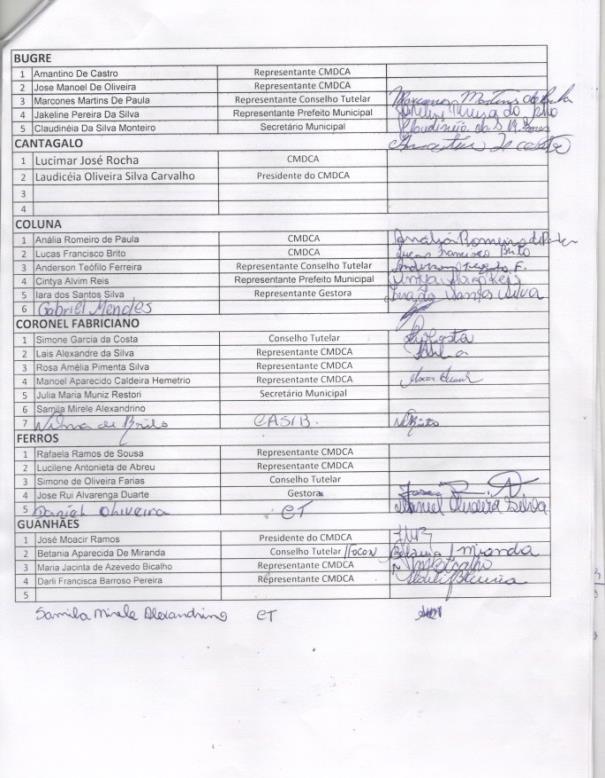 BUGRE
1 Amantino De Castro Representante CMDCA
2 Jose Manoel De Oliveira Representante CMDCA
3 Marcones Martins De Paula Representante Conselho Tutelar Marcones Martins de Paula
4 Jakeline Pereira Da Silva Representante Prefeito Municipal
5 Claudinéia Da Silva Monteiro Secretário Municipal
CANTAGALO
1 Lucimar José Rocha CMDCA
2 Laudicéia Oliveira Silva Carvalho Presidente do CMDCA
3
4
COLUNA
1 Anália Romeiro de Paula CMDCA Anália Romeiro de Paula
2 Lucas Francisco Brito CMDCA Lucas Francisco Brito
3 Anderson Teófilo Ferreira Representante Conselho Tutelar Anderson Teófilo F.
4 Cintya Alvim Reis Representante Prefeito Municipal
5 Iara dos Santos Silva Representante Gestora Iara dos Santos Silva
6 Gabriel Mendes
CORONEL FABRICIANO
1 Simone Garcia da Costa Conselho Tutelar
2 Lais Alexandre da Silva Representante CMDCA
3 Rosa Amélia Pimenta Silva Representante CMDCA
4 Manoel Aparecido Caldeira Hemetrio Representante CMDCA
5 Julia Maria Muniz Restori Secretário Municipal
6 Samila Mirele Alexandrino
7 Wilma de Brito CASIB
FERROS
1 Rafaela Ramos de Sousa Representante CMDCA
2 Lucilene Antonieta de Abreu Representante CMDCA
3 Simone de Oliveira Farias Conselho Tutelar
4 Jose Rui Alvarenga Duarte Gestora
5 Daniel Oliveira CT Daniel Oliveira Silva
GUANHÃES
1 José Moacir Ramos Presidente do CMDCA
2 Betania Aparecida De Miranda Conselho Tutelar /FOCON Betania Miranda
3 Maria Jacinta de Azevedo Bicalho Representante CMDCA
4 Darli Francisca Barroso Pereira Representante CMDCA
5
Samila Mirele Alexandrino CT